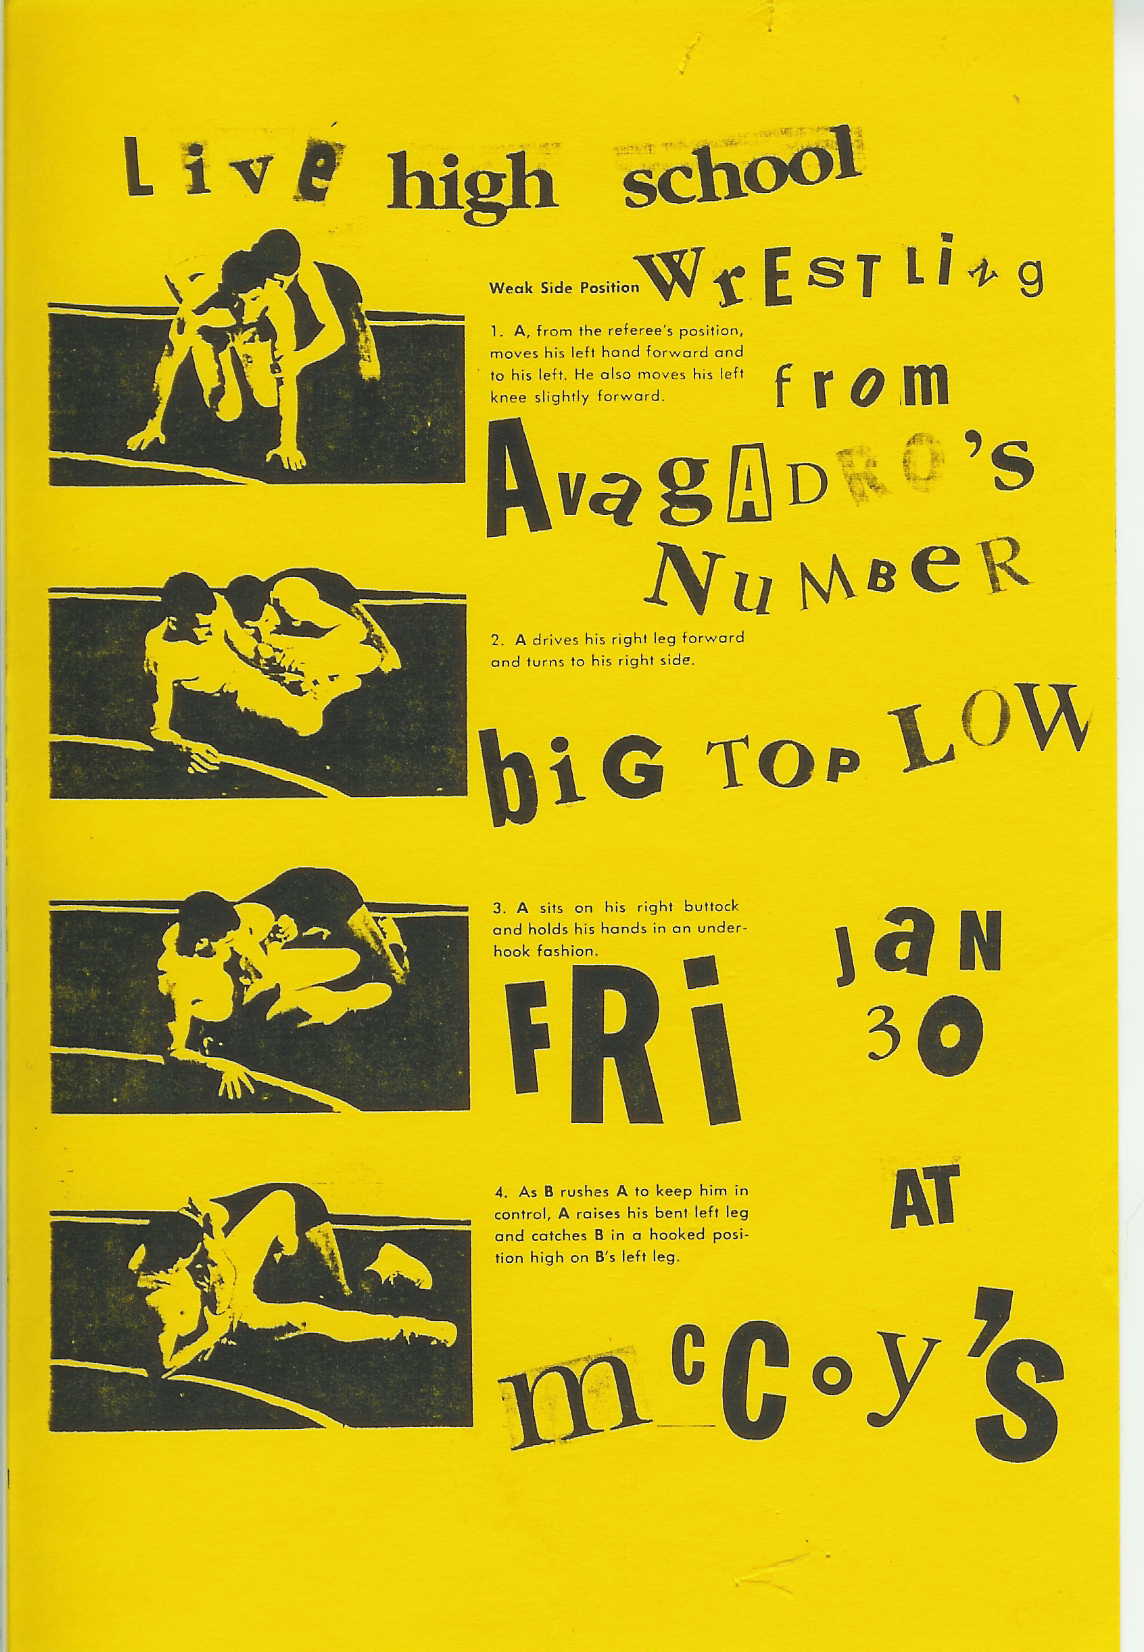 Live high school
Weak Side Position
WrESTLiNg
1. A, from the referee's position,
moves his left hand forward and
to his left. He also moves his left
knee slightly forward.
from
AvagADRO's
NuMBeR
2. A drives his right leg forward
and turns to his right side.
biG TOP LOW
3. A sits on his right buttock
and holds his hands in an under-
hook fashion.
JaN
30
FRi
AT
4. As B rushes A to keep him in
control, A raises his bent left leg
and catches B in a hooked posi-
tion high on B's left leg.
mcCoy's